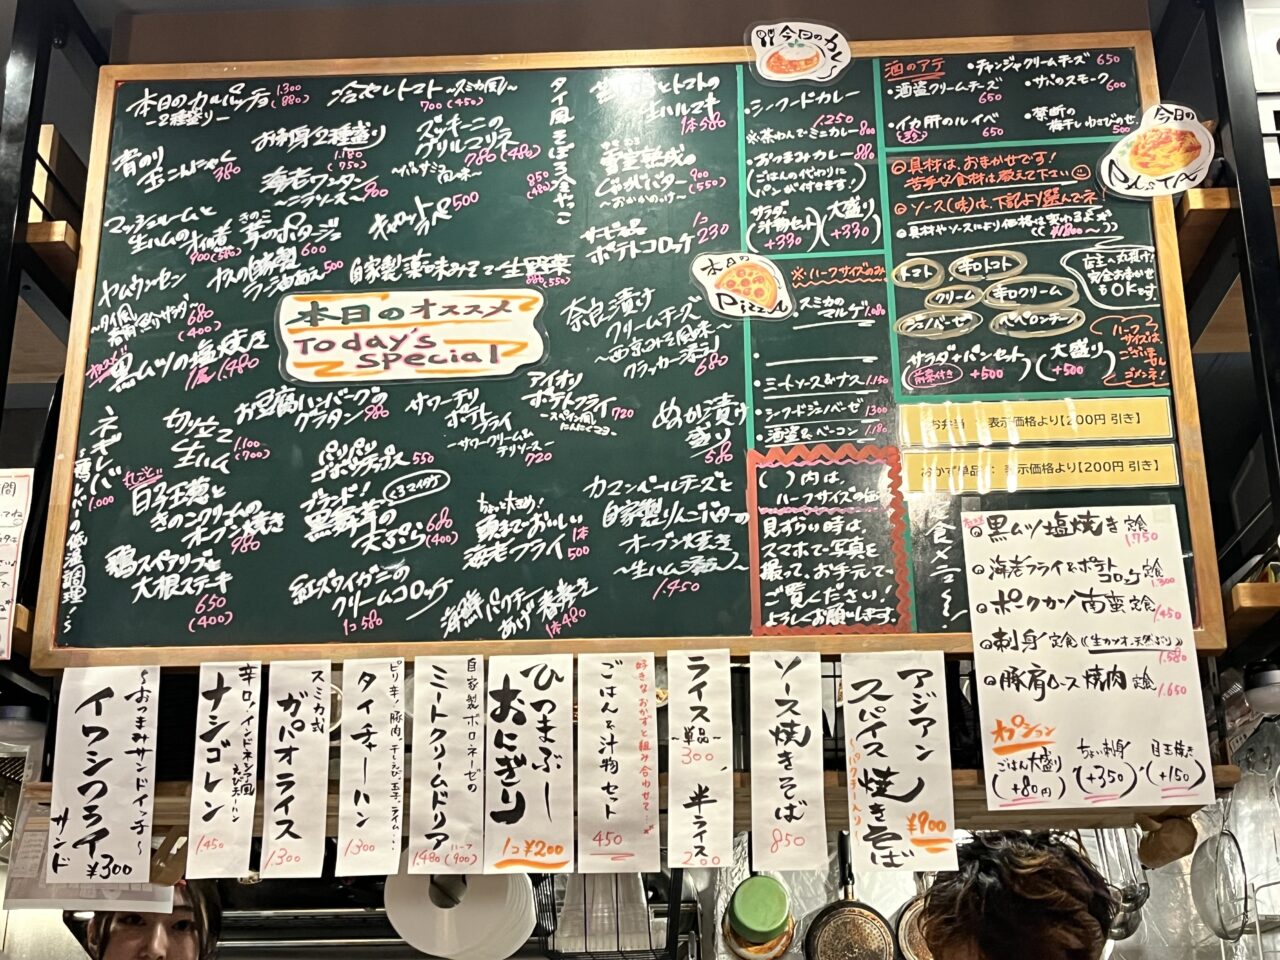 本日のカルパッチョ
〜2種盛り〜
1.300
(880)
冷やしトマト〜スミカ風〜
700(450)
タイ風そぼろ冷やっこ
850
(480)
とトマトの
生ハルマキ
1本580
青のり
玉こんにゃく
380
お刺身2種盛り
1.180
(750)
ズッキーニの
グリルマリネ
〜バルサミコ風味〜
780(480)
海老ワンタン
〜ニラソース〜
900
熟成の
じゃがバター
〜おかかのっけ〜
900
(550)
マッシュルームと
生ハムの
きのこ
茸のポタージュ
600
キャロットラペ
500
ポテトコロッケ
1コ
230
ヤムウンセン
〜タイ風春雨サラダ〜
680
(400)
ナスの自家製
ラー油あえ
500
自家製薬味みそで生野菜
880(550)
本日のオススメ
Today's
Special
奈良漬け
クリームチーズ
〜西京みそ風味〜
クラッカー添え
680
オススメ
黒ムツの塩焼き
1尾1.480
ネギレバー
〜鶏レバーの低温調理!〜
1.000
切り立て
生ハム
1.100
(700)
お豆腐ハンバーグの
グラタン
980
サワーチリ
ポテト
フライ
〜サワークリーム&
チリソース〜
720
アイオリ
ポテトフライ
〜スペイン風
にんにくマヨ〜
720
ぬか漬け
盛り
580
パリパリ
ゴボウチップス
550
丸ごと!
白子玉葱と
きのこクリームの
オーブン焼き
980
ブランド!
黒舞茸の
天ぷら
(くろマイタケ)
680
(400)
ちょっと大きめ!
頭までおいしい
海老フライ
1本
500
カマンベールチーズと
自家製りんごバターの
オーブン焼き
〜生ハム添え〜
1.450
鶏スペアリブと
大根ステーキ
650
(400)
紅ズワイガニの
クリームコロッケ
1コ580
海鮮パクチー
あげ春巻き
1本480
今日のカレー
・シーフードカレー
1.250
※茶わんでミニカレー 800
・おつまみカレー 880
(ごはんの代わりに
パンが付きます!)
(サラダ
汁物セット
+330)
(大盛り
+330)
本日の
Pizza
※ハーフサイズのみ
・スミカの
マルゲ 1.080
・ミートソース&ナス 1.150
・シーフードジェノベーゼ 1.300
・酒盗&ベーコン 1.180
( )内は、
ハーフサイズの価格
見ずらい時は、
スマホで写真を
撮って、お手元で
ご覧ください!
よろしくお願いします。
酒のアテ
・チャンジャクリームチーズ 650
・酒盗クリームチーズ
650
・サバのスモーク
600
・イカ肝のルイベ
650
・禁断の
梅干しわさびのせ
500
今日の
PASTA
◎具材は、おまかせです!
苦手な食材は教えて下さい
◎ソース(味)は、下記より選んでネ!
◎具材やソースにより価格は変わるよ
((¥1.800〜))
トマト
辛口トマト
クリーム
辛口クリーム
ジェノベーゼ
ペペロンチーノ
店主へお任せ!
完全お任せ
もOKです。
サラダ+パンセット
前菜付き +500
(大盛り
+500)
ハーフ
サイズは、
ございま
せん
ゴメンネ!
お弁当 表示価格より【200円 引き】
おかず単品 表示価格より【200円 引き】
定食メニュー
◎黒ムツ塩焼き定食
1.750
◎海老フライ&ポテト
コロッケ定食
1.300
◎ポークカツ南蛮定食
1.450
◎刺身定食((生カツオ、天然ぶり))
1.580
◎豚肩ロース焼肉定食
1.650
オプション
(ごはん大盛り
+80円)
・(ちょい刺身
+350)
・(目玉焼き
+150)
〜おつまみサンドイッチ〜
イワシフライ
サンド
¥300
辛口!インドネシア風
えびチャーハン
ナシゴレン
1.450
スミカ式
ガパオライス
1.300
ピリ辛!豚肉、干しえび、玉子、ライム・・・
タイチャーハン
1.300
自家製ボロネーゼの
ミートクリームドリア
1.480
ハーフ
(900)
ひつまぶし
おにぎり
1コ¥200
好きなおかずと組み合わせて…
ごはん&汁物セット
450
ライス
〜単品〜
300
半ライス
200
ソース焼きそば
850
アジアン
スパイス焼きそば
〜パクチー入り〜
¥900